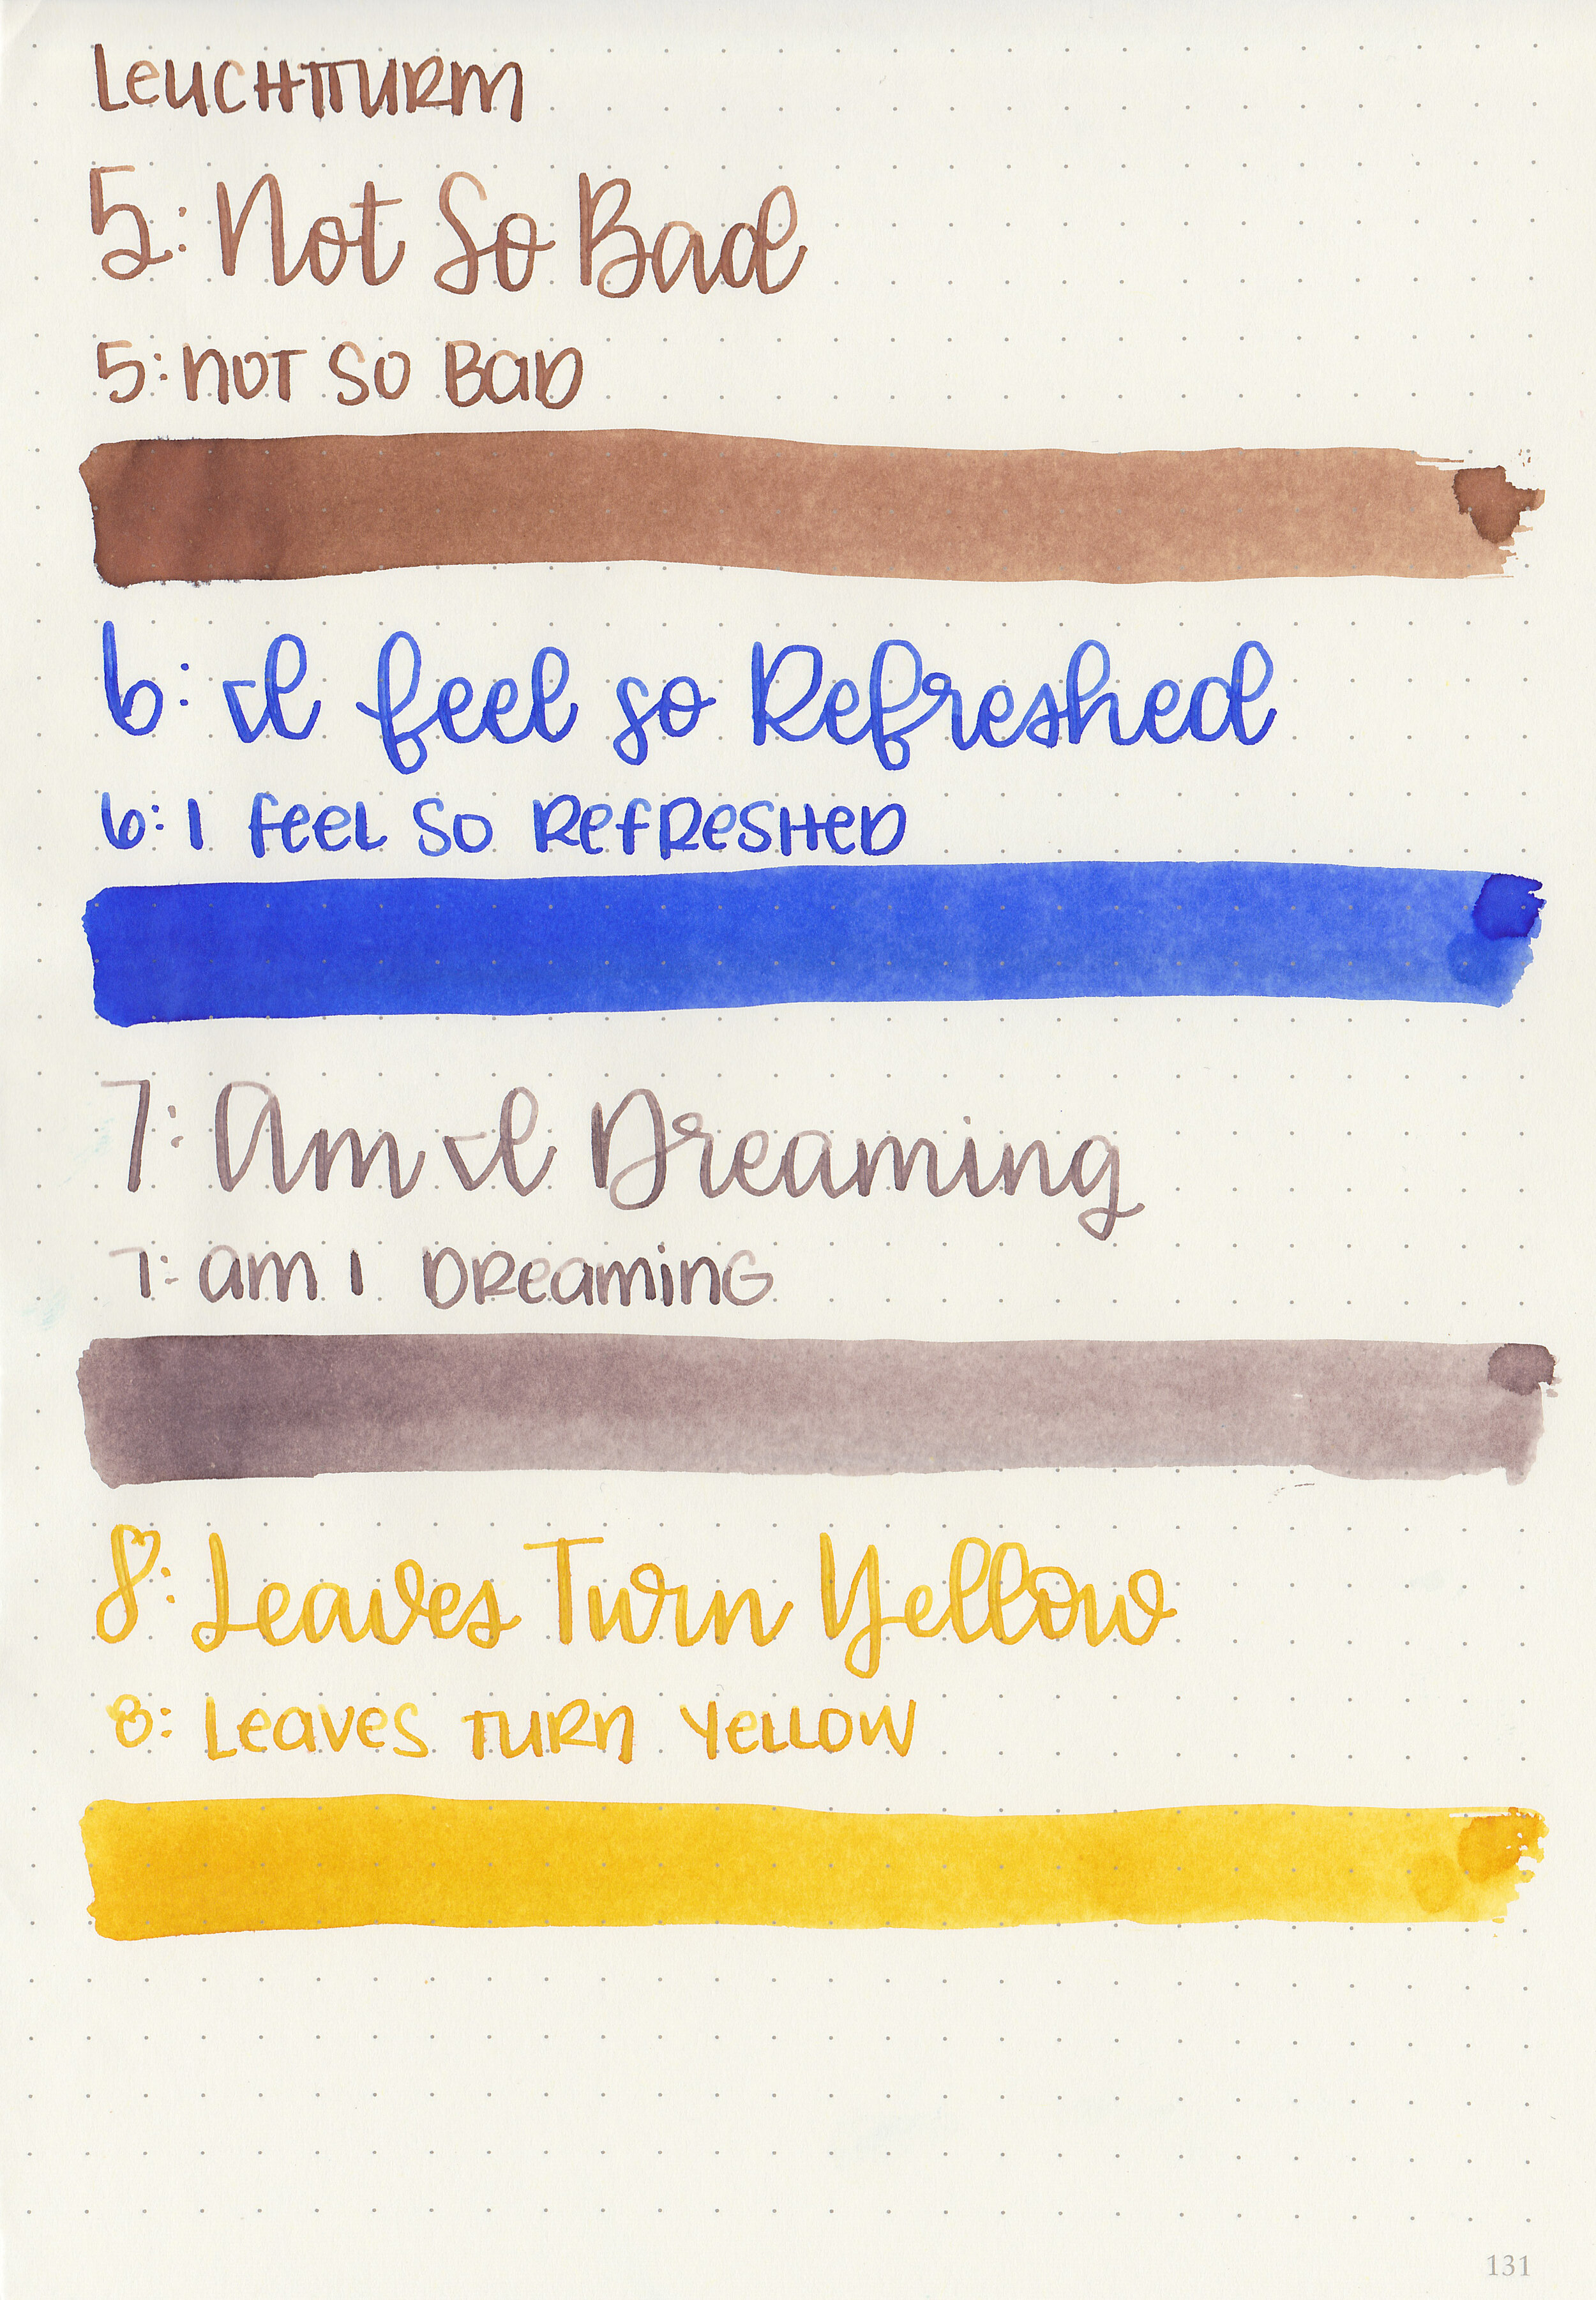 Leuchtturm
5: Not So Bad
5: Not So Bad
6: I feel so Refreshed
6: I feel so Refreshed
7: Am I Dreaming
7: Am I Dreaming
8: Leaves Turn Yellow
8: Leaves Turn Yellow
131